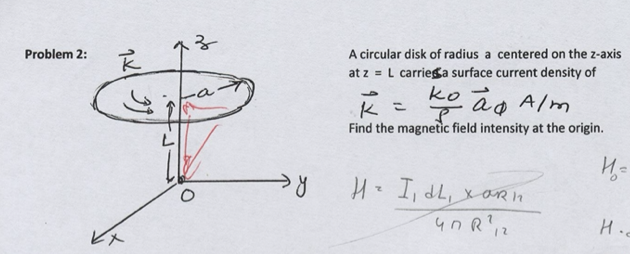 Problem 2:
A circular disk of radius a centered on the z-axis
at z = L carries a surface current density of
K⃗ = K0/ρ a⃗ϕ A/m
Find the magnetic field intensity at the origin.
K⃗
z
a
L
O
y
x
H = I₁ dL₁ × aR12 / 4π R²₁₂
H₀=
H